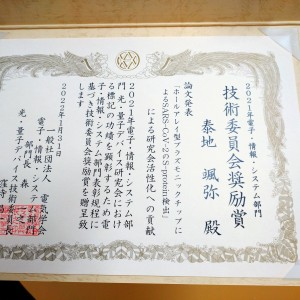 2021年電子・情報・システム部門
技術委員会奨励賞
泰地 颯弥 殿
論文発表
「ホールアレイ型プラズモニックチップに
よるSARS-CoV-2のS-protein検出」
による研究会活性化への貢献
2021年電子・情報・システム部
門光・量子デバイス研究会におけ
る標記の功績を顕彰するため電
子・情報・システム部門表彰規程に
基づき技術委員会奨励賞を贈呈致
します
2022年1月31日
一般社団法人 電気学会
電子・情報・システム部門
部門長 森
光・量子デバイス技術委員長